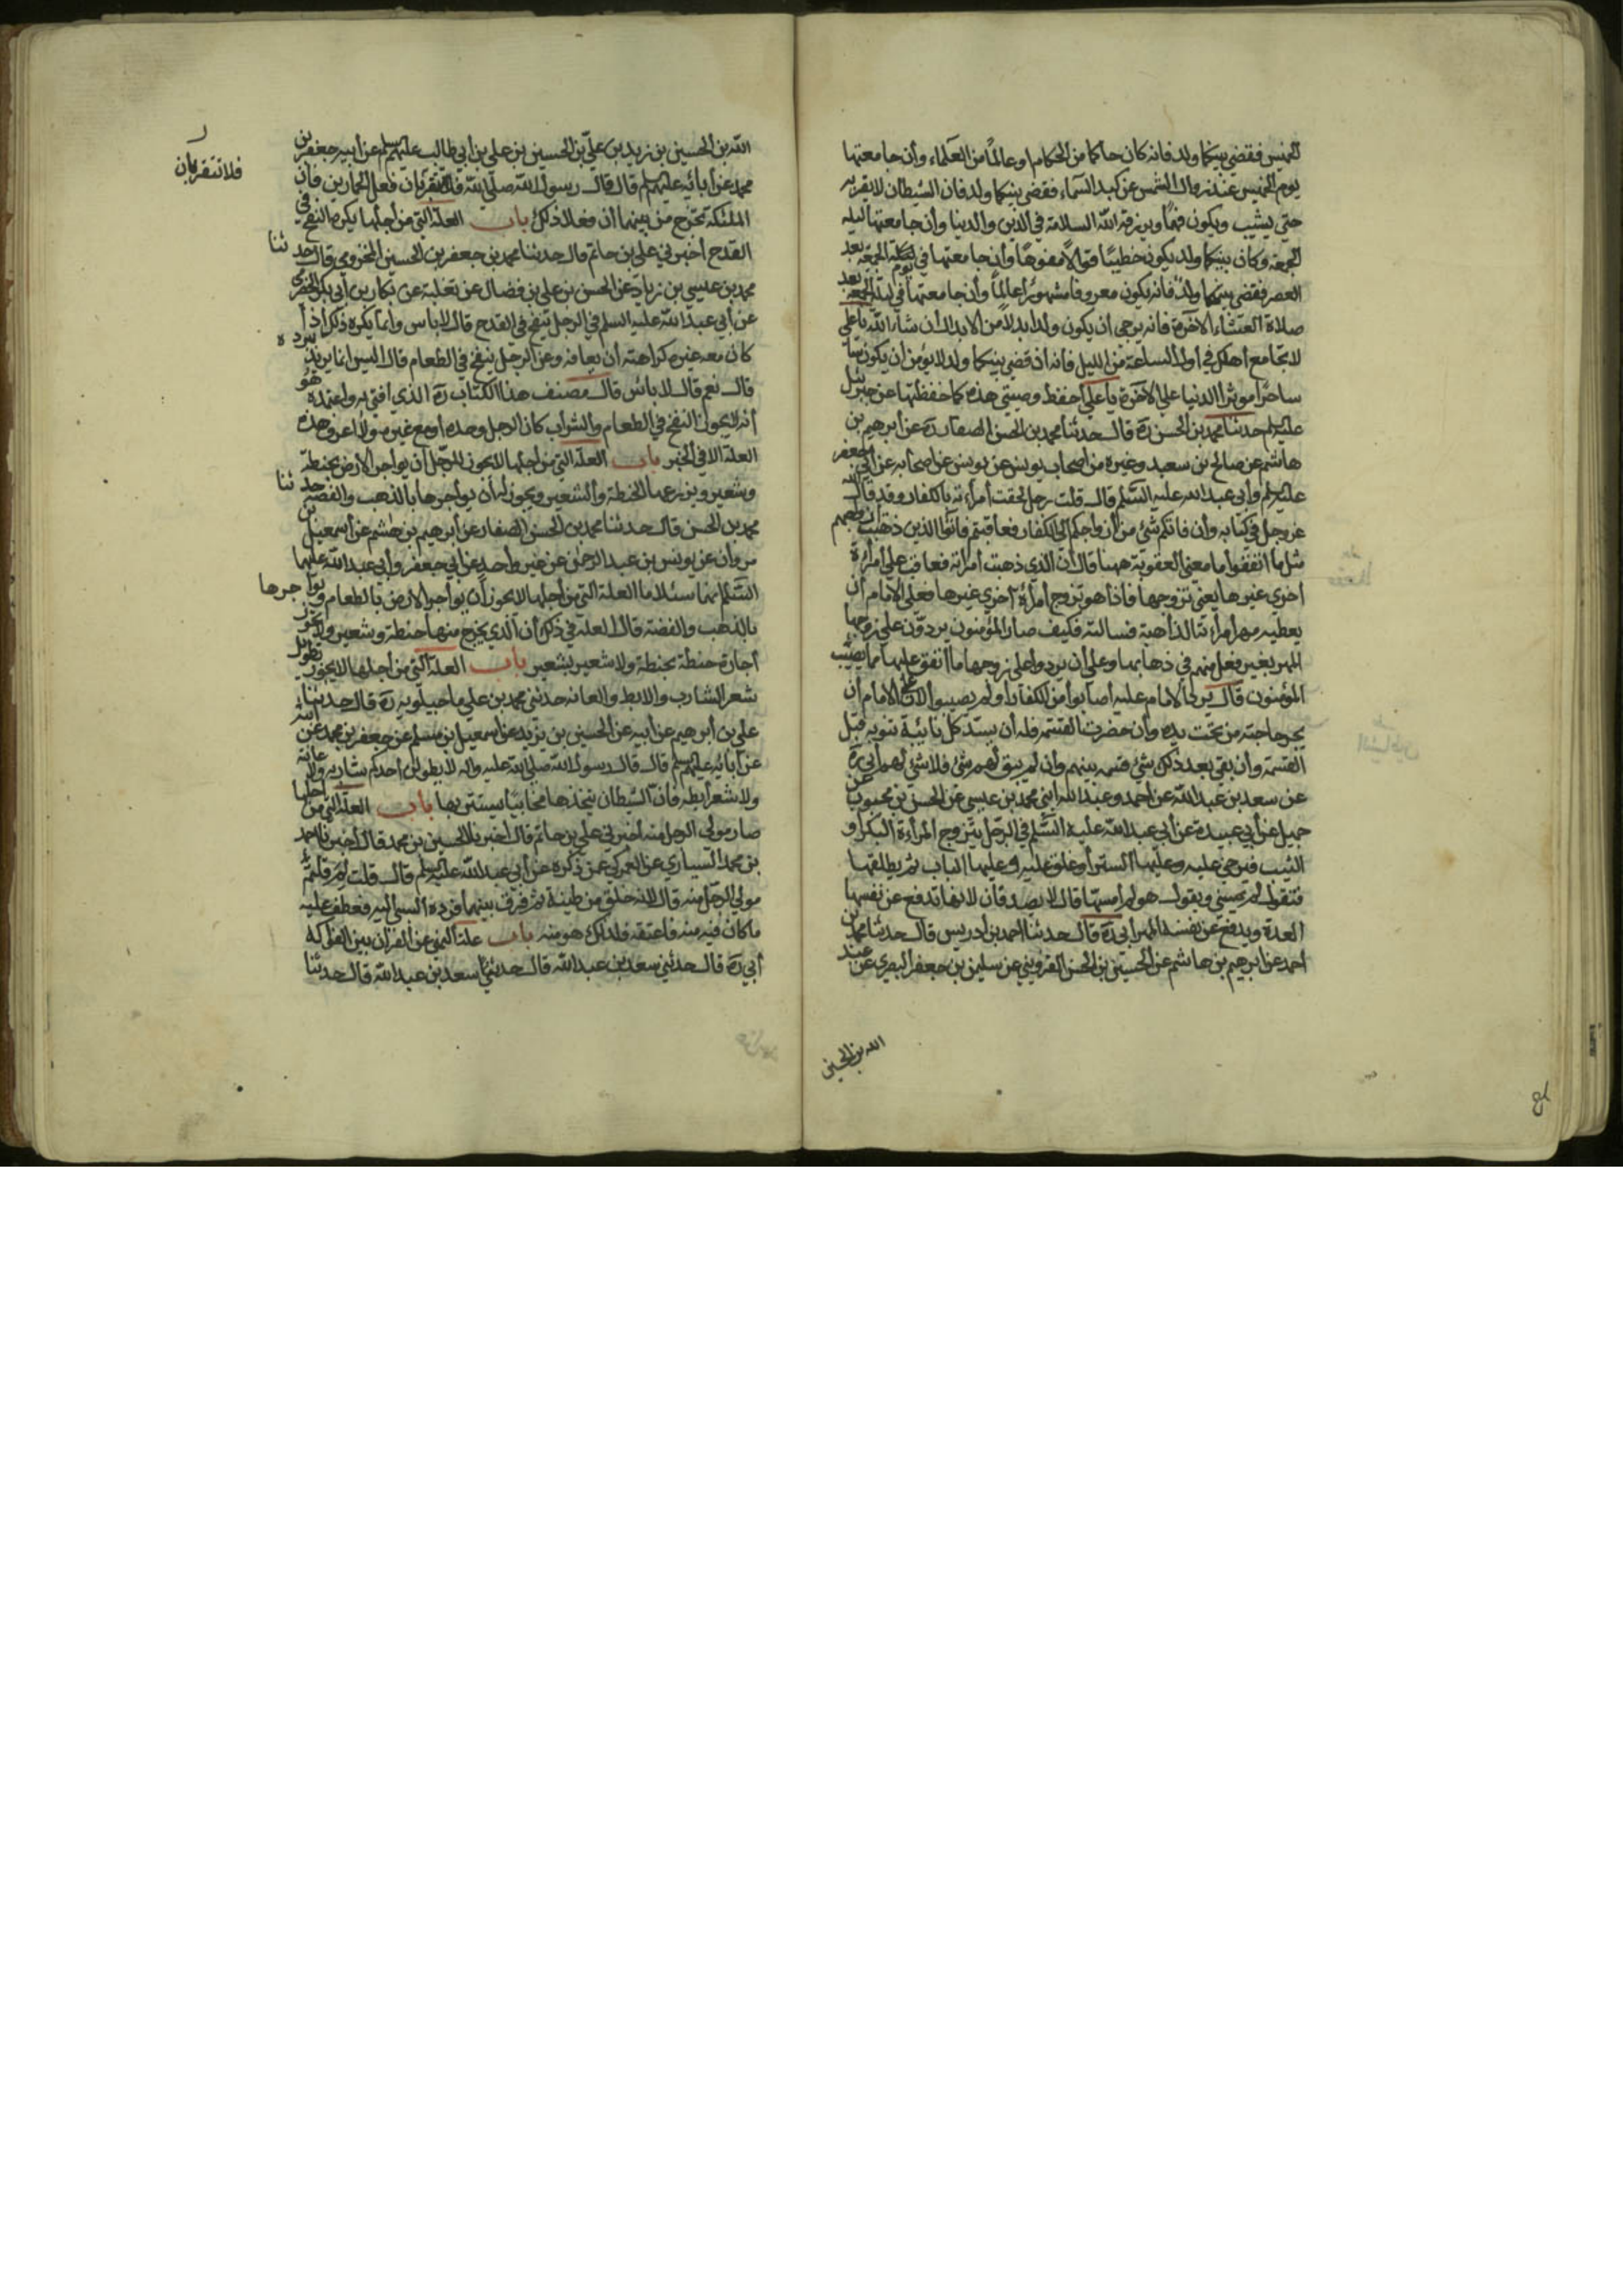 الخميس فقضي بينكما ولد فانه كان حاكما من الحكام او عالماً من العلماء وأن جامعتها
يوم الخميس عند زوال الشمس عن كبد السماء فقضي بينكما ولد فان الشيطان لا يقربه
حتي يشيب ويكون فهماً ويرزقه الله السلامة في الدين والدنيا وأن جامعتها ليلة
الجمعة وكان بينكما ولد يكون خطيبًا قوالاً مفوهًا وأن جامعتها في يوم الجمعة بعد
العصر فقضي بينكما ولد فانه يكون معروفا مشهورًا عالمًا وأن جامعتها في ليلة الجمعة بعد
صلاة العشاء الآخرة فانه يرجي ان يكون ولدا بدلاً من الابدال ان شاء الله يا علي
لا تجامع أهلك في أول الساعة من الليل فانه اذ قضي بينكما ولد لا يؤمن ان يكون
ساحرًا موثرا الدنيا علي الآخرة يا علي أحفظ وصيتي هذه كما حفظتها عن جبرئيل
عليه لم حدثنا محمد بن الحسن ره قال حدثنا محمد بن الحسن الصفار ره عن أبرهيم بن
هاشم عن صالح بن سعيد وغيره من اصحاب يونس عن يونس عن اصحابه عن أبي جعفر
عليه لم وأبي عبد الله عليه السلم قال قلت رجل لحقت أمرأته بالكفار وقد قال الله
عز وجل في كتابه وأن فاتكم شئ من أزواجكم الي الكفار فعاقبتم فاتوا الذين ذهبت أزواجهم
مثل ما أنفقوا ما معني العقوبة ههنا قال أن الذي ذهبت أمرأته فعاقب علي أمرأة
أخري غيرها يعني تزوجها فاذا هو تزوج أمرأة أخري غيرها فعلي الامام أن
يعطيه مهر أمرأته الذاهبة فسالته فكيف صار المؤمنون يردون علي زوجها
المهر بغير فعل منهم في ذهابها وعلي أن يردوا علي زوجها ما أنفق عليها مما يصيب
المؤمنون قال يرد الامام عليه أصابوا من الكفار او لم يصيبوا لان علي الامام أن
يجبر حاجته من تحت يده وأن حضرت القسمة فله أن يسد كل نائبة تنوبه قبل
القسمة وأن بقي بعد ذلك شئ قسمه بينهم وأن لم يبق لهم شئ فلا شئ لهم أبي ره
عن سعد بن عبد الله عن أحمد وعبد الله ابني محمد بن عيسي عن الحسن بن محبوب عن
جميل عن أبي عبيدة عن أبي عبد الله عليه السلم في الرجل يتزوج المرأة البكر أو
الثيب فيرخي عليه وعليها الستر أو غلق عليه وعليها الباب ثم يطلقها
فتقول لم يمسني ويقول هو لم أمسها قال لا يصدقان لانها تدفع عن نفسها
العدة ويدفع عن نفسه المهر أبي ره قال حدثنا أحمد بن أدريس قال حدثنا محمد بن
احمد عن ابرهيم بن هاشم عن الحسين بن الحسن القزويني عن سليمن بن جعفر البصري عن عبد
الله بن الحسين
الله بن الحسين بن زيد بن علي بن الحسين بن علي بن أبي طالب عليهم لم عن أبيه جعفر بن
محمد عن أبائه عليهم لم قال قال رسول الله صلي الله فعل الحمارين فأن
فلا تتقربان
الملئكة تخرج من بينهما أن فعلا ذلك باب العلة التي من أجلها يكره النفخ في
القدح أخبرني علي بن حاتم قال حدثنا محمد بن جعفر بن الحسين المخزومي قال حدثنا
محمد بن عيسي بن زياد عن الحسن بن علي بن فضال عن ثعلبة عن بكار بن أبي بكر الحضرمي
عن أبي عبد الله عليه السلم في الرجل ينفخ في القدح قال لا باس وأنما يكره ذلك أذا
كان معه غيره كراهته أن يعافه وعن الرجل ينفخ في الطعام قال اليس انما يريد برده
قال نعم قال لا بائس قال مصنف هذا الكتاب ره الذي افتي به واعتمده هو
أنه لا يجوز النفخ في الطعام والشراب كان الرجل وحده أو مع غيره ولا أعرف هذه
العلة الا في الخبر باب العلة التي من أجلها لا يجوز للرجل أن يواجر الارض بحنطة
وشعير ويزرعها الحنطة والشعير ويجوز له أن يواجرها بالذهب والفضة حدثنا
محمد بن الحسن قال حدثنا محمد بن الحسن الصفار عن أبرهيم بن هشم عن أسمعيل بن
مروان عن يونس بن عبد الرحمن عن غير واحد عن أبي جعفر وأبي عبد الله عليهما
السلم انهما سئلا ما العلة التي من أجلها لا يجوز أن يواجر الارض بالطعام ويواجرها
بالذهب والفضة قال العلة في ذلك أن الذي يخرج منها حنطة وشعير ولا يجوز
أجارة حنطة بحنطة ولا شعير بشعير باب العلة التي من أجلها لا يجوز تطويل
شعر الشارب والابط والعانه حدثني محمد بن علي ماجيلويه ره قال حدثنا
علي بن أبرهيم عن أبيه عن الحسين بن يزيد عن أسمعيل بن مسلم عن جعفر بن محمد عن
عن أبائه عليهم لم قال قال رسول الله صلي الله عليه واله لا يطولن أحدكم شاربه ولا عانته
ولا شعر أبطه فان الشيطان يتخذها مخابيًا يستتر بها باب العلة التي من أجلها
صار مولي الرجل منه أخبرني علي بن حاتم قال أخبرنا الحسين بن محمد قال أخبرنا أحمد
بن محمد السياري عن العمركي عمن ذكره عن أبي عبد الله عليه لم قال قلت لم قلتم
مولي الرجل منه قال لانه خلق من طينة ثم فرق بينهما فرده السبي اليه فعطف عليه
ما كان فيه منه فاعتقه فلذلك هو منه باب علة النهي عن القران بين الفواكه
أبي ره قال حدثني سعد بن عبد الله قال حدثني سعد بن عبد الله قال حدثنا